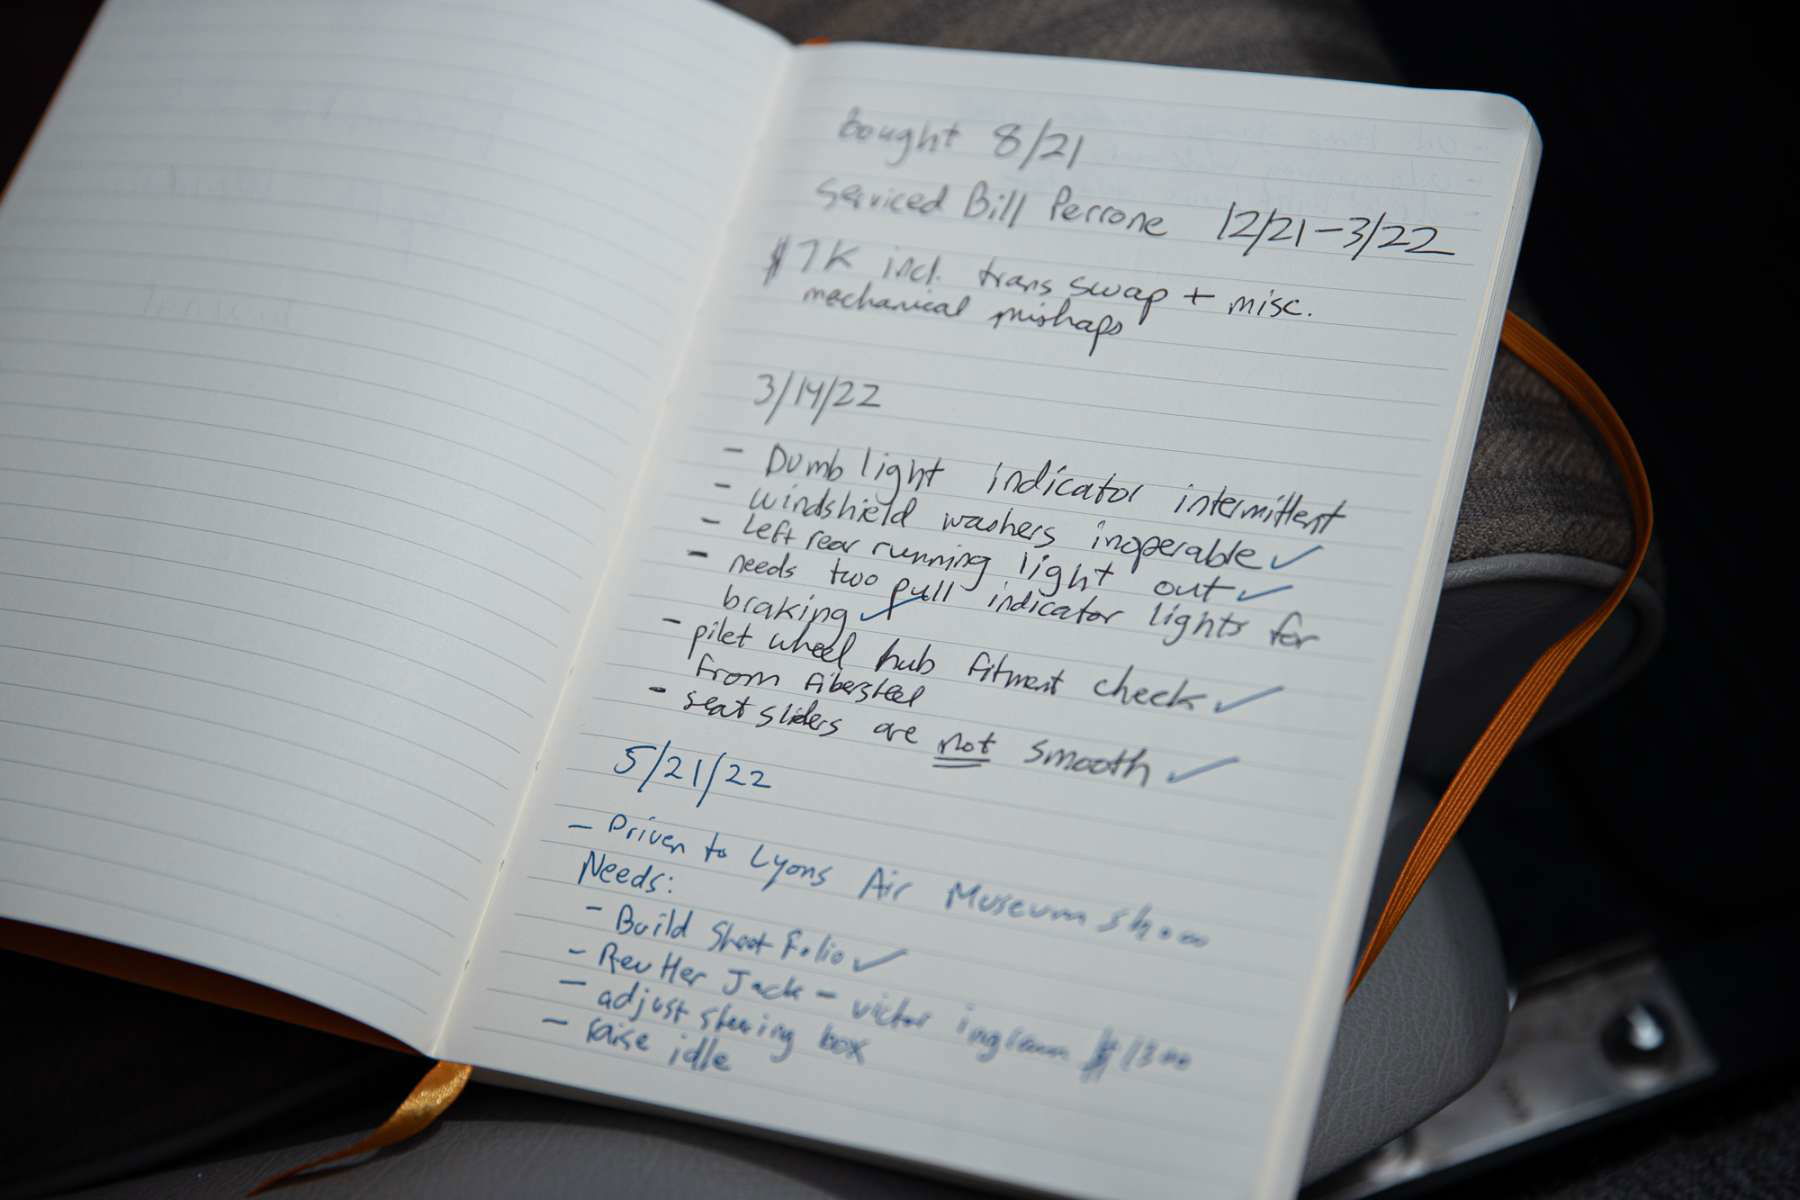 bought 8/21
Serviced Bill Perrone 12/21-3/22
$7K incl. trans swap + misc.
mechanical mishaps
3/14/22
- Dumb light indicator intermittent
- windshield washers inoperable ✓
- Left rear running light out ✓
- needs two pull indicator lights for
braking ✓
- pilet wheel hub fitment check ✓
from fibersteel
- seat sliders are not smooth ✓
5/21/22
- Driven to Lyons Air Museum
Needs:
- Build Sheet Folio ✓
- Reutter Jack - victor ingram $1300
- adjust steering box
- raise idle